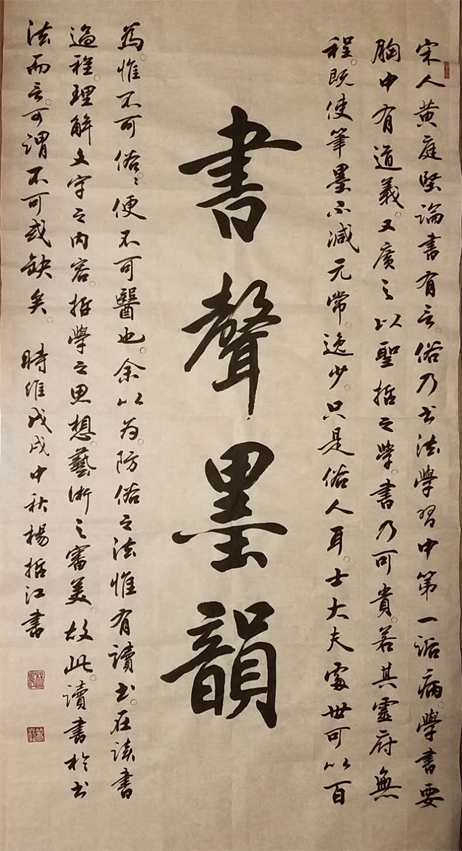 宋人黄庭坚論書有言。俗乃书法學習中第一詬病。學書要
胸中有道義。又廣之以聖哲之學。書乃可貴。若其靈府無
程。既使筆墨不减元常逸少。只是俗人耳。士大夫處世可以百
書聲墨韻
為。惟不可俗。〻便不可醫也。余以为防俗之法惟有讀书。在读書
過程理解文字之内容。哲學之思想藝術之審美。故此。讀書於书
法而言。可謂不可或缺矣。時維戊戌中秋楊哲江書